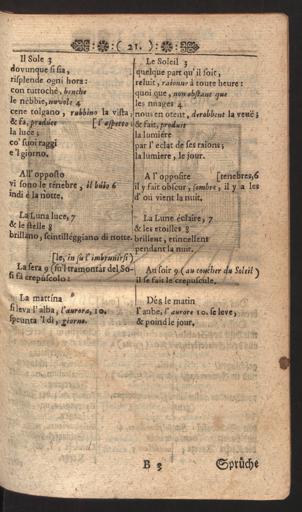 ( 21. )
Il Sole 3
dovunque si sia,
risplende ogni hora:
con tuttochè, benche
le nebbie, nuvole 4
cene tolgano, rubbino la vista,
& fà, produce [l'aspetto
la luce;
co' suoi raggi
e'l giorno.
All' opposto
vi sono le tenebre, il búio 6
indi è la notte.
La Luna luce, 7
& le stelle 8
brillano, scintilléggiano di notte.
[le, in su l'imbrunirsi)
La sera 9 (su'l tramontar del So-
si fà crepúscolo:
La mattina
si leva l'alba, l'aurora, 10.
spounta 'l di, giorno.
Le Soleil 3
quelque part qu'il soit,
reluit, raionne à toute heure:
quoi que, non obstant que
les nuages 4
nous en otent, derobbent la veuë;
& fait, produit
la lumière
par l'eclat de ses raions;
la lumiere, le jour.
A l'opposite [tenebres, 6
il y fait obscur, sombre, il y a les
d'ou vient la nuit.
La Lune éclaire, 7
& les etoilles 8
brillent, etincellent
pendant la nuit.
Au soir 9 (au coucher du Soleil)
il se fait le crepuscule.
Dès le matin
l'aube, l'aurore 10. se leve,
& poind le jour.
B 3
Sprüche